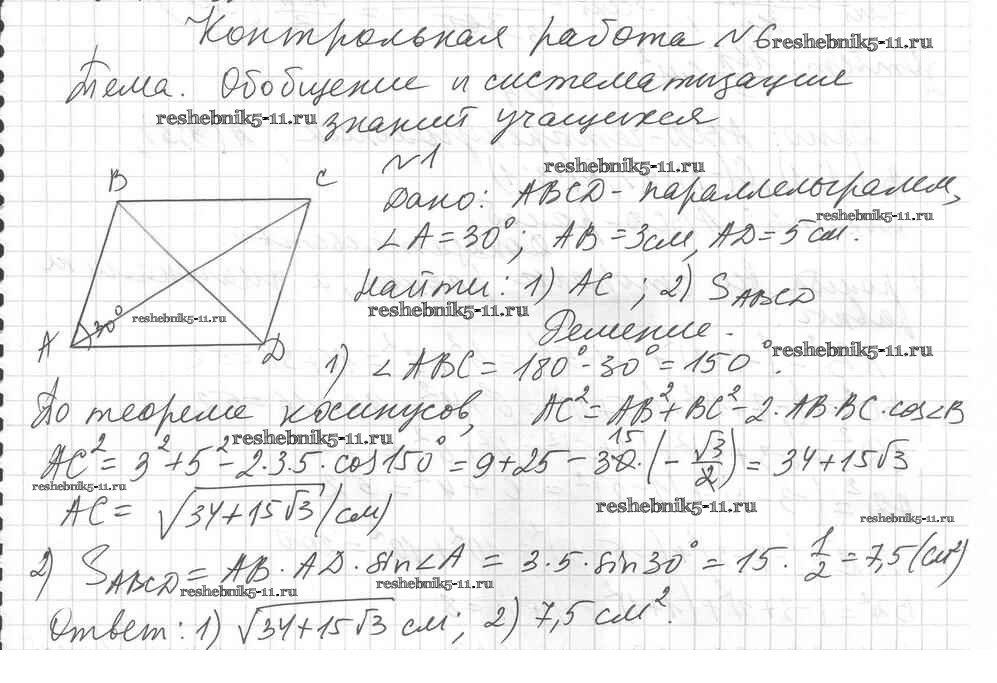 Контрольная работа №6 reshebnik5-11.ru
Тема. Обобщение и систематизация
reshebnik5-11.ru знаний учащихся
№1 reshebnik5-11.ru
B C
Дано: ABCD - параллелограмм,
reshebnik5-11.ru
∠A = 30°; AB = 3 см, AD = 5 см.
Найти: 1) AC ; 2) S_ABCD
reshebnik5-11.ru
A 30° reshebnik5-11.ru D
Решение.
1) ∠ABC = 180° - 30° = 150°. reshebnik5-11.ru
По теореме косинусов, AC² = AB² + BC² - 2·AB·BC·cos∠B
reshebnik5-11.ru
AC² = 3² + 5² - 2·3·5·cos150° = 9 + 25 - 30·(-√3/2) = 34 + 15√3
15
2
reshebnik5-11.ru
AC = √(34 + 15√3) (см) reshebnik5-11.ru
reshebnik5-11.ru
2) S_ABCD = AB·AD·sin∠A = 3·5·sin30° = 15·1/2 = 7,5 (см²)
reshebnik5-11.ru reshebnik5-11.ru
Ответ: 1) √(34 + 15√3) см; 2) 7,5 см².